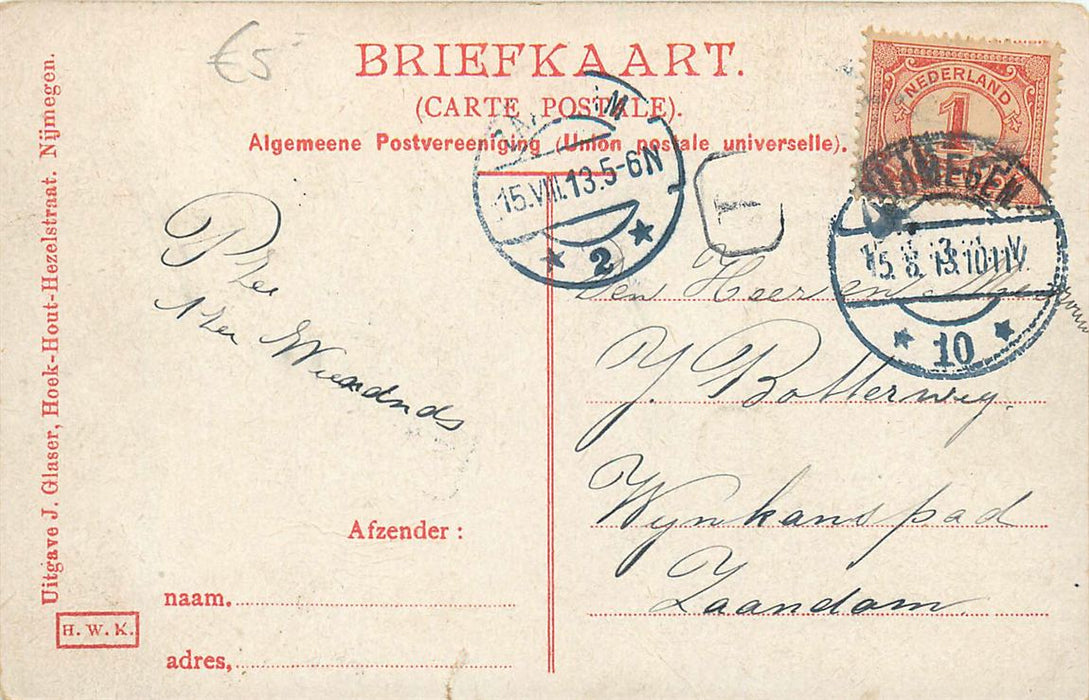 €5
BRIEFKAART.
(CARTE POSTALE).
Algemeene Postvereeniging (Union postale universelle).
NEDERLAND
1
NIJMEGEN
15.8.13.10-11V.
10
15.VIII.13.5-6N
2
T
Den Heer en Mevrouw
J. Botterweg.
Wynkanspad
Zaandam
Afzender :
naam.
adres,
Uitgave J. Glaser, Hoek-Hout-Hezelstraat. Nijmegen.
H. W. K.